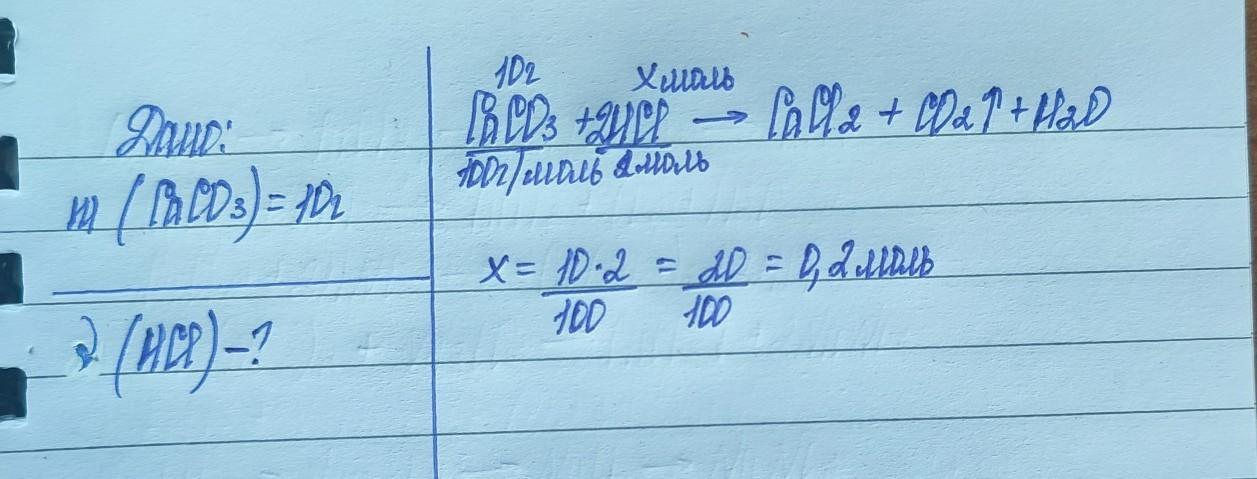 Дано:
m (CaCO₃) = 10г
ν (HCl) – ?
10г x моль
CaCO₃ + 2HCl → CaCl₂ + CO₂↑ + H₂O
100г/моль 2моль
x = 10·2/100 = 20/100 = 0,2 моль